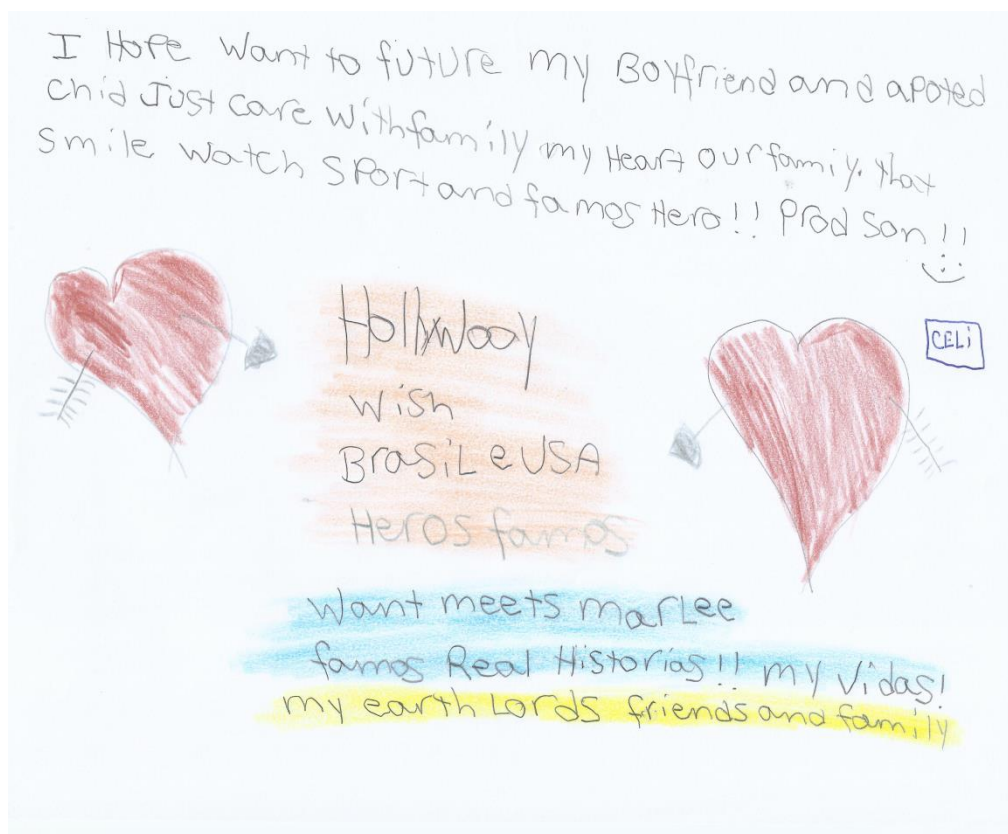 I Hope Want to future my Boyfriend and apoted
chid Just care With family my Heart our family. that
smile watch Sport and famos Hero!! Prod Son!!
CELi
Hollywooy
wish
BrasiL e USA
Heros famos
Want meets marLee
famos Real Historias!! my Vidas!
my earth Lords friends and family